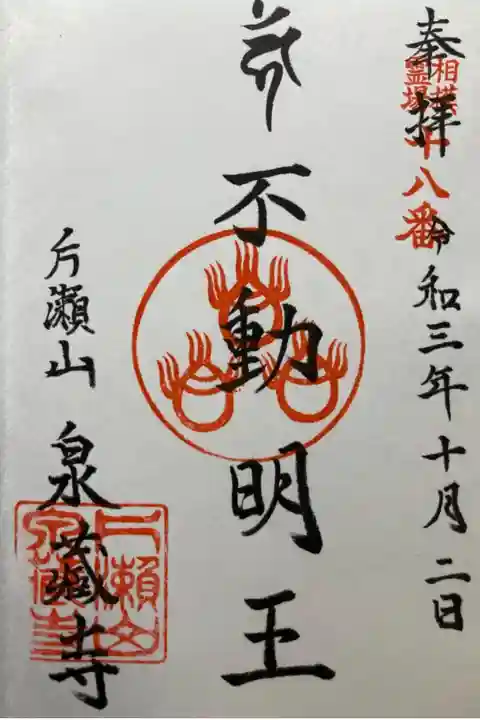 奉拝
相模
霊場
十八番
令和三年十月二日
不動明王
片瀬山 泉蔵寺
片瀬山
泉蔵寺